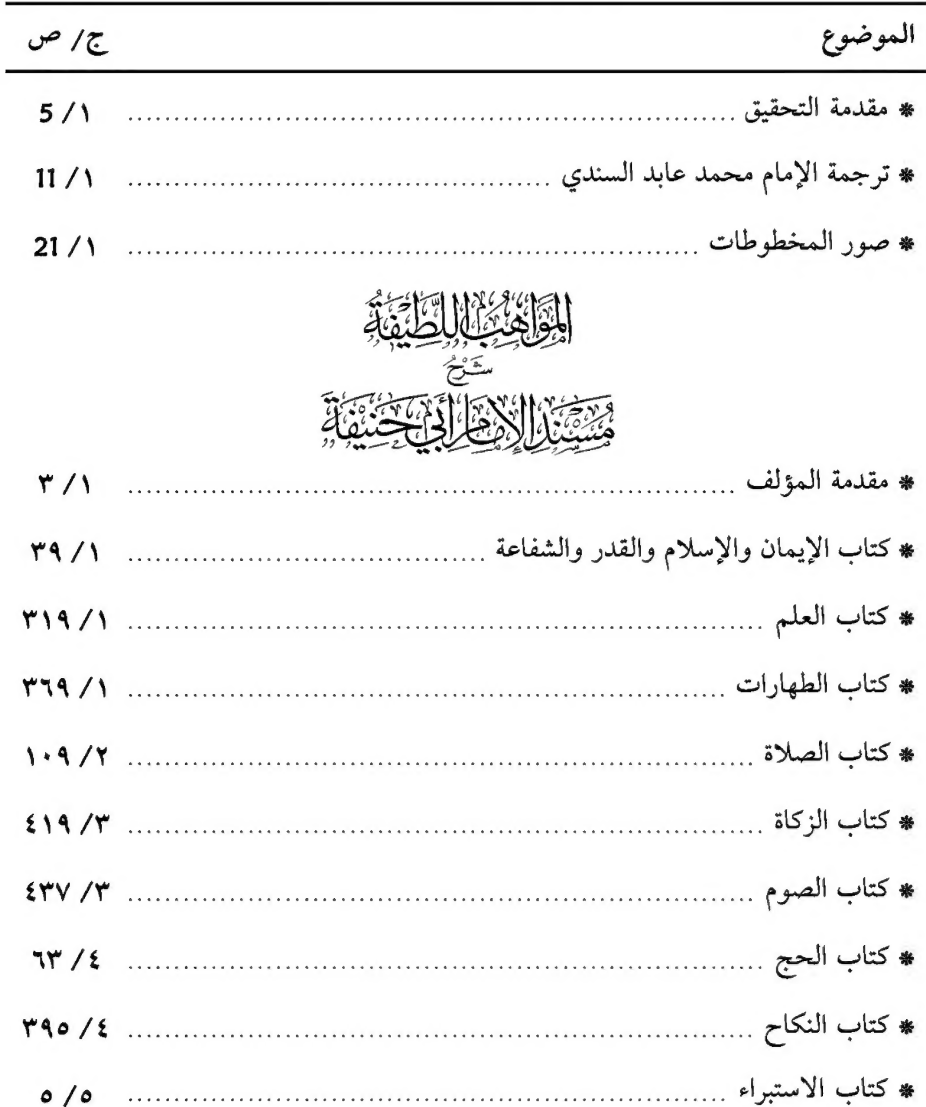 الموضوع ج/ ص
* مقدمة التحقيق ................................ ١/ 5
* ترجمة الإمام محمد عابد السندي ................................ ١/ 11
* صور المخطوطات ................................ ١/ 21
المَوَاهِبُ اللَّطِيفَةُ
شَرْحُ
مُسْنَدِ الإِمَامِ أَبِي حَنِيفَةَ
* مقدمة المؤلف ................................ ١/ ٣
* كتاب الإيمان والإسلام والقدر والشفاعة ................................ ١/ ٣٩
* كتاب العلم ................................ ١/ ٣١٩
* كتاب الطهارات ................................ ١/ ٣٦٩
* كتاب الصلاة ................................ ٢/ ١٠٩
* كتاب الزكاة ................................ ٣/ ٤١٩
* كتاب الصوم ................................ ٣/ ٤٣٧
* كتاب الحج ................................ ٤/ ٦٣
* كتاب النكاح ................................ ٤/ ٣٩٥
* كتاب الاستبراء ................................ ٥/ ٥